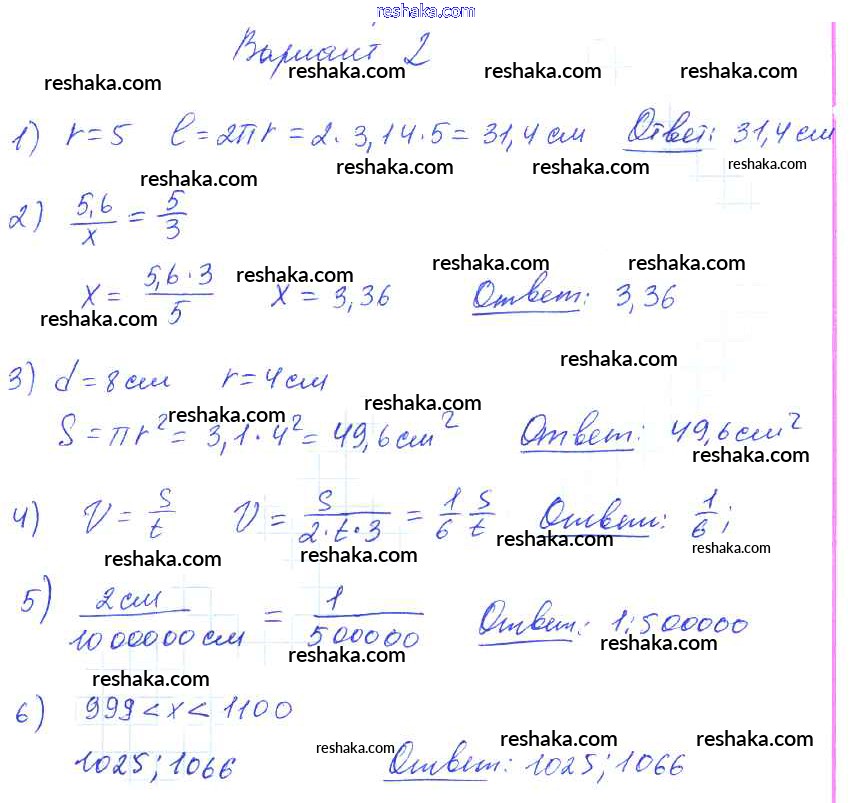 reshaka.com
Вариант 2
reshaka.com reshaka.com reshaka.com reshaka.com
1) r = 5 ℓ = 2πr = 2 · 3,14 · 5 = 31,4 см Ответ: 31,4 см
reshaka.com reshaka.com reshaka.com reshaka.com
2) 5,6/x = 5/3
reshaka.com reshaka.com reshaka.com
x = 5,6 · 3/5 x = 3,36 Ответ: 3,36
reshaka.com
reshaka.com
3) d = 8 см r = 4 см
reshaka.com reshaka.com
S = πr² = 3,1 · 4² = 49,6 см² Ответ: 49,6 см²
reshaka.com
4) V = S/t V = S/2·t·3 = 1/6 S/t Ответ: 1/6;
reshaka.com reshaka.com reshaka.com reshaka.com
5) 2 см/1000000 см = 1/500000 Ответ: 1:500000
reshaka.com reshaka.com
reshaka.com
6) 999 < x < 1100
reshaka.com reshaka.com reshaka.com
1025; 1066 Ответ: 1025; 1066